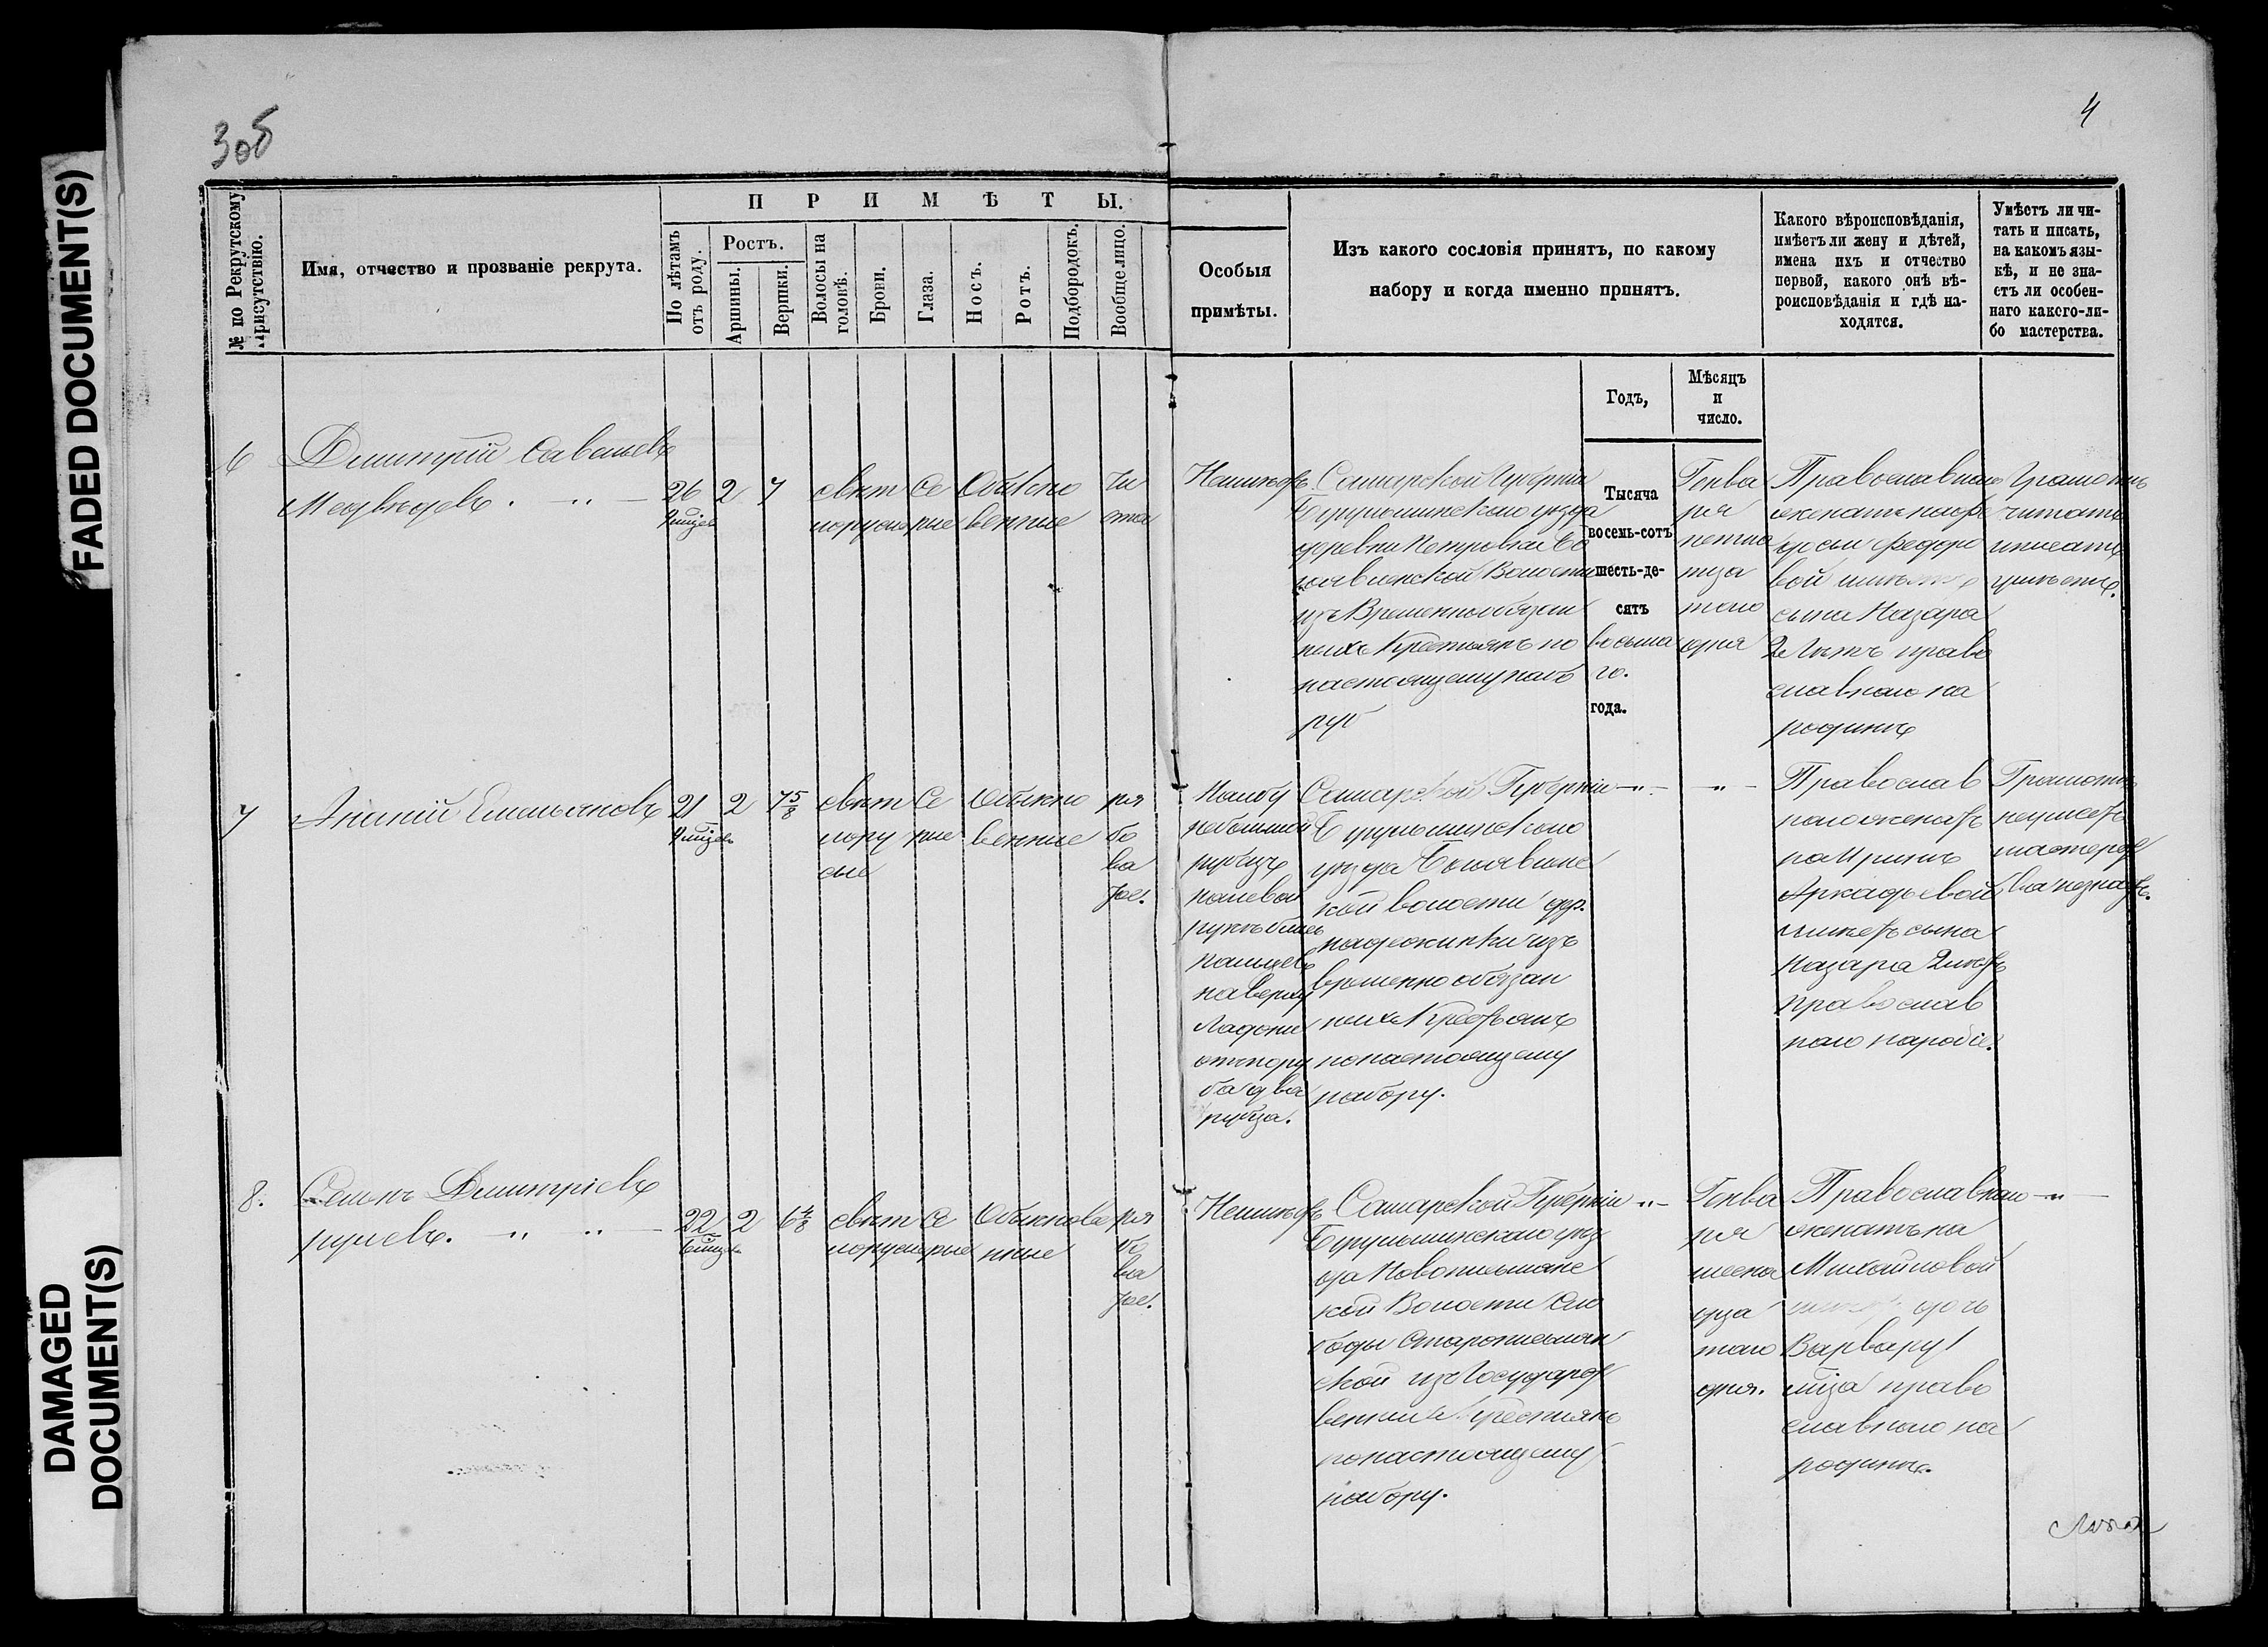 FADED DOCUMENT(S)
DAMAGED
DOCUMENT(S)
3об
4
№ по Рекрутскому
присутствію.
Имя, отчество и прозваніе рекрута.
ПРИМѢТЫ.
По лѣтамъ
отъ роду.
Ростъ.
Аршины.
Вершки.
Волосы на
головѣ.
Брови.
Глаза.
Носъ.
Ротъ.
Подбородокъ.
Вообще лицо.
Особыя
примѣты.
Изъ какого сословія принятъ, по какому
набору и когда именно принятъ.
Годъ,
Мѣсяцъ
и
число.
Какого вѣроисповѣданія,
имѣетъ ли жену и дѣтей,
имена ихъ и отчество
первой, какого онѣ вѣ-
роисповѣданія и гдѣ на-
ходятся.
Умѣетъ ли чи-
тать и писать,
на какомъ язы-
кѣ, и не зна-
етъ ли особен-
наго какого-ли-
бо мастерства.
6
Дмитрій Савельевъ
Медвѣдевъ. " —
26
2
7
свѣт
лорусые
Се
рые
Обыкно
венные
Чи
стое
Неимѣетъ
Самарской Губерніи
Бугульминскаго уѣзда
деревни Петровки
Волости
изъ Временнообязан
ныхъ Крестьянъ по
настоящему набо
ру
Тысяча
восемь-сотъ
шесть-де-
сятъ
восьма
го.
года.
Генва
ря
пятнад
цa
таго
дня
Православнаго
женатъ на
Федоро
вой имѣетъ
сына Назара
2 лѣтъ право
славнаго на
родинѣ
Грамотѣ
читать
иписать
умѣетъ.
7
Ананій Емельяновъ
21
2
7 5/8
свѣт
лору
сые
Се
рые
Обыкно
венные
ря
бо
ва
тое.
На лбу
небольшой
рубецъ
на левой
рукѣ близъ
пальцевъ
на верху
Ладони
ба два
рубца.
Самарской Губерніи
Бугульминскаго
уѣзда
кой волости дер.
надеждинки изъ
временно обязан
ныхъ Крестьянъ
по настоящему
набору.
— " —
— " —
Православ
наго женатъ
на Иринѣ
Аркадьевой
имѣетъ сына
Назара 2 лѣтъ
православ
наго
Грамотѣ
неумѣетъ
мастерст
ва незнаетъ.
8.
Семенъ Дмитріевъ
" " —
22
2
6 4/8
свѣт
лорусые
Се
рые
Обыкнове
нные
ря
бо
ва
тое.
Неимѣетъ
Самарской Губерніи
Бугульминскаго уѣз
да Новописьмянс
кой Волости Сло
боды Старописьмян
ской изъ Государст
венныхъ Крестьянъ
по настоящему
набору.
— " —
Генва
ря
шестнад
ца
таго
дня.
Православнаго
женатъ на
Михайловой
имѣетъ дочь
Варвару 1
мѣсяца право
славнаго на
родинѣ.
— " —